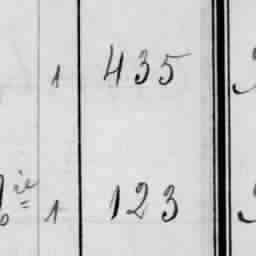 1 435
1 123